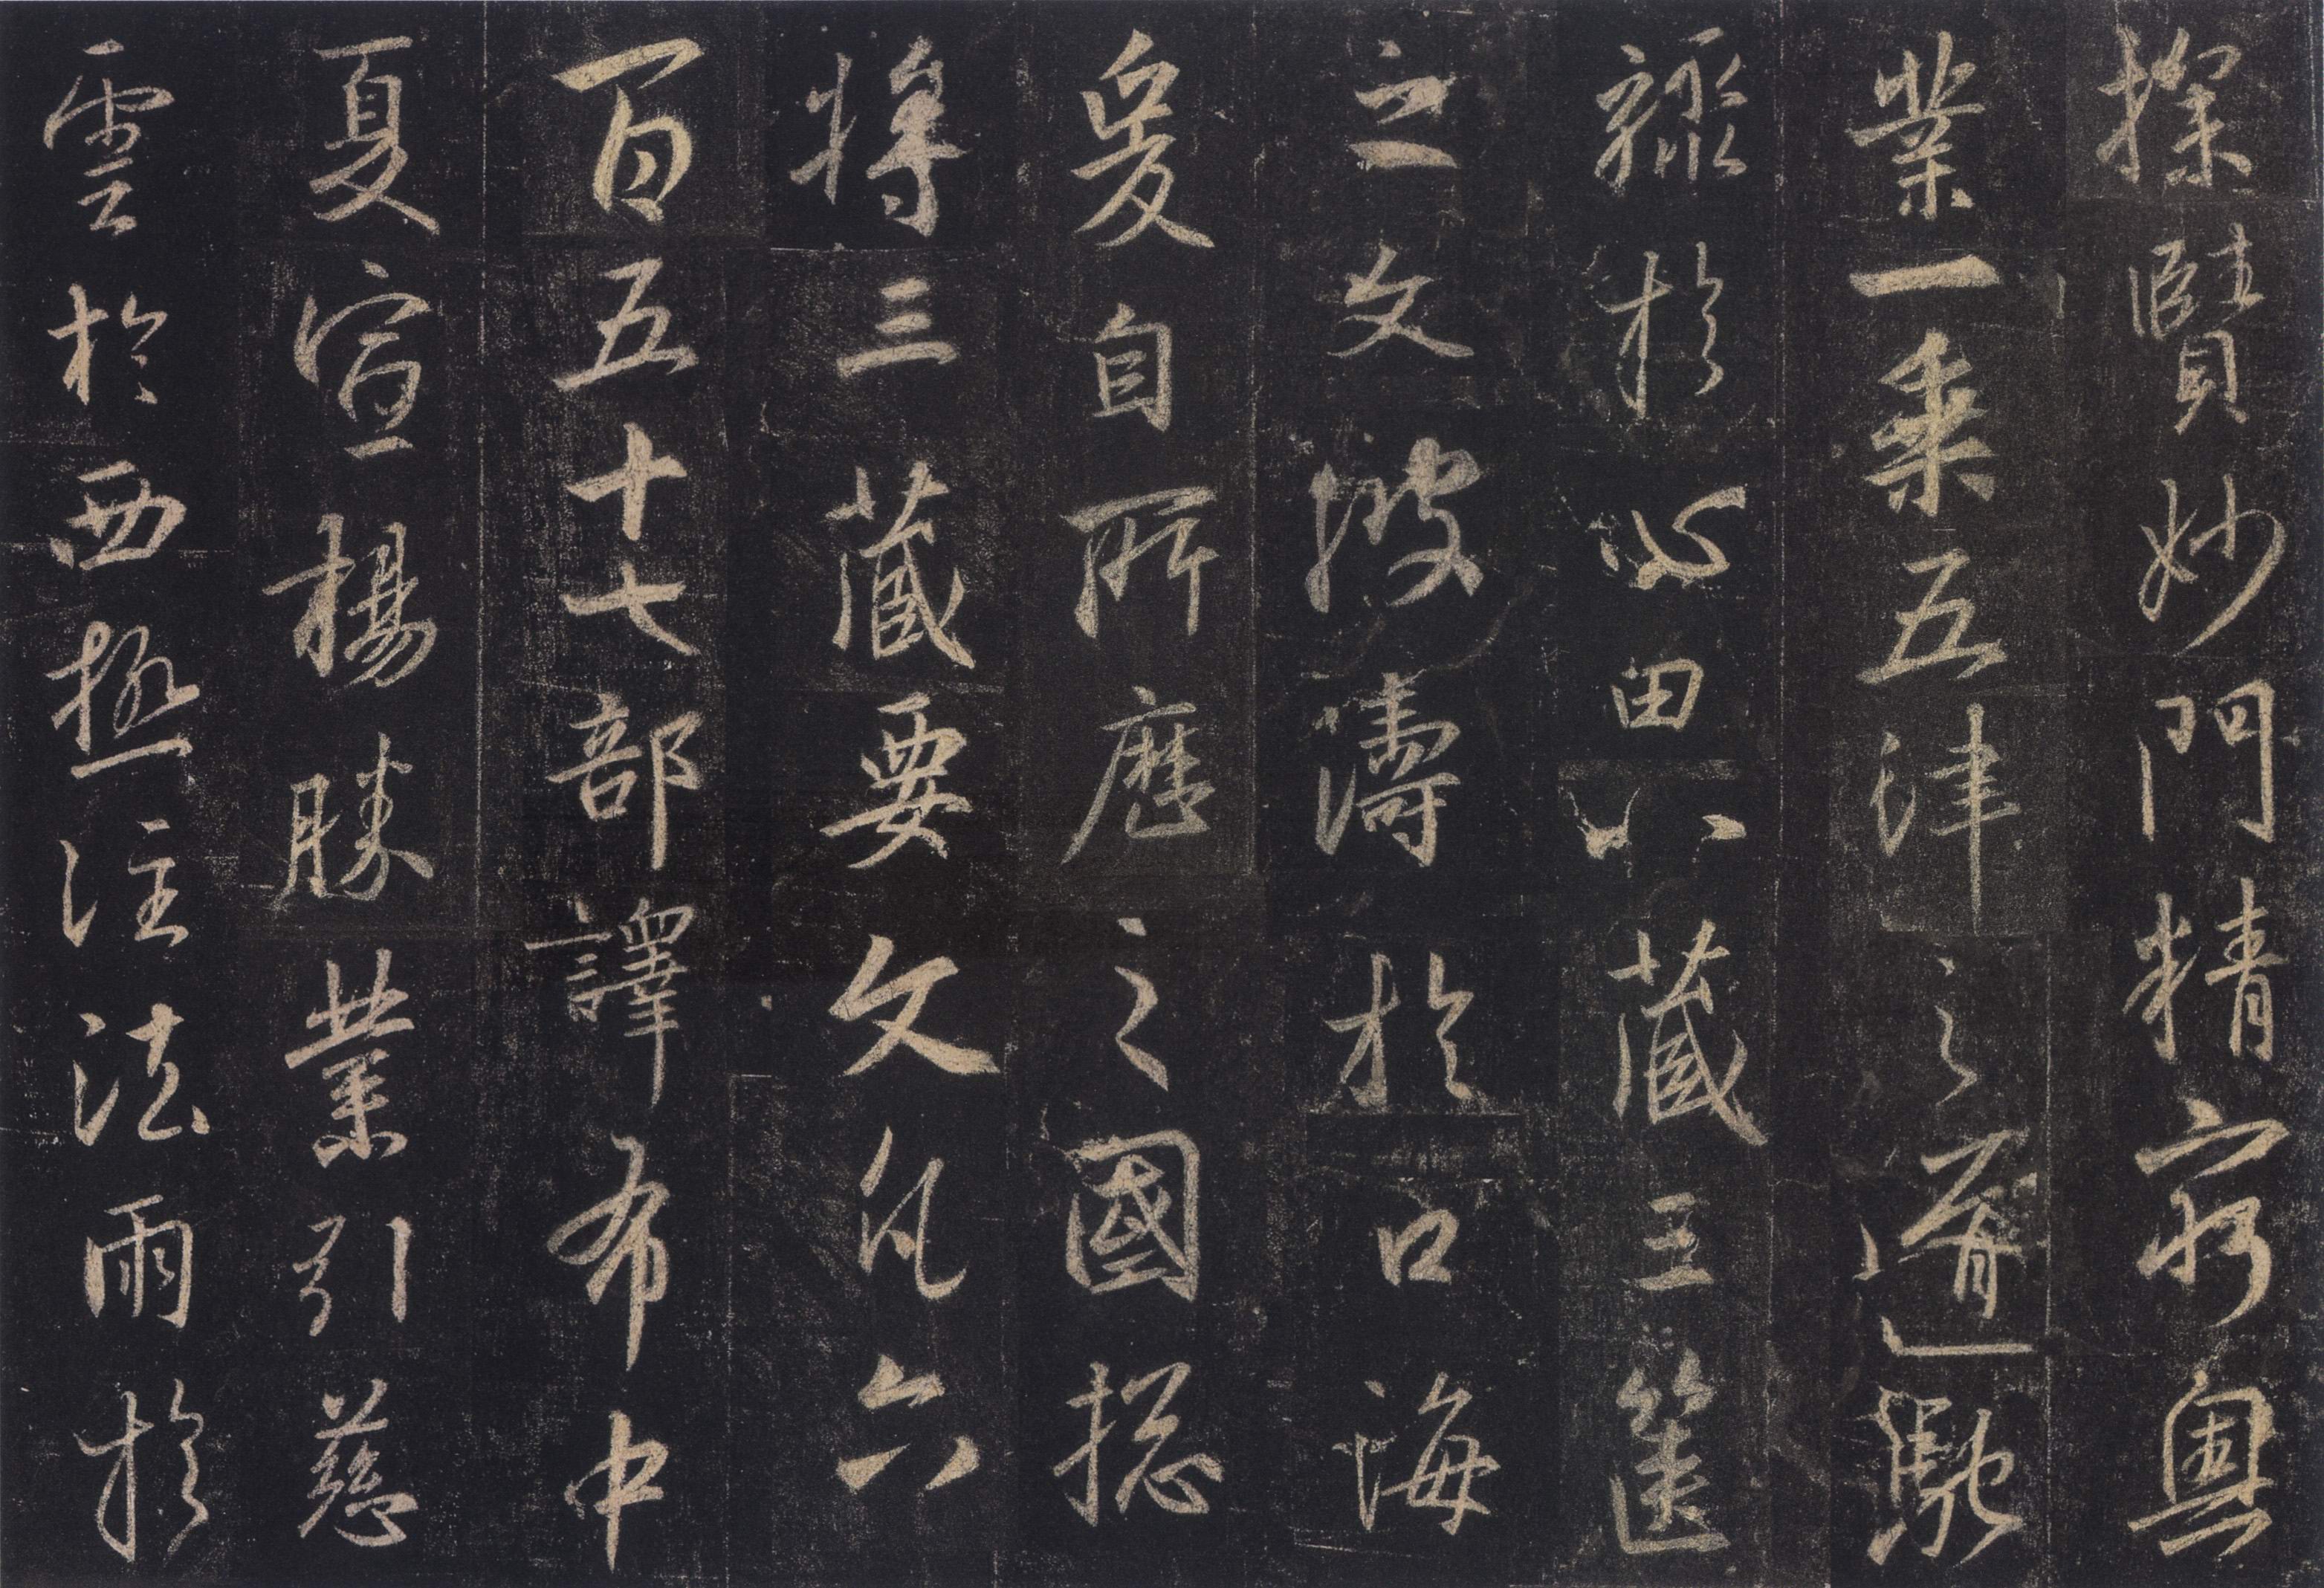 探賾妙門精窮奧
業一乘五津之道馳
驟於心田八藏三篋
之文波濤於口海
爰自所歷之國揔
將三藏要文凡六
百五十七部譯布中
夏宣揚勝業引慈
雲於西極注法雨於